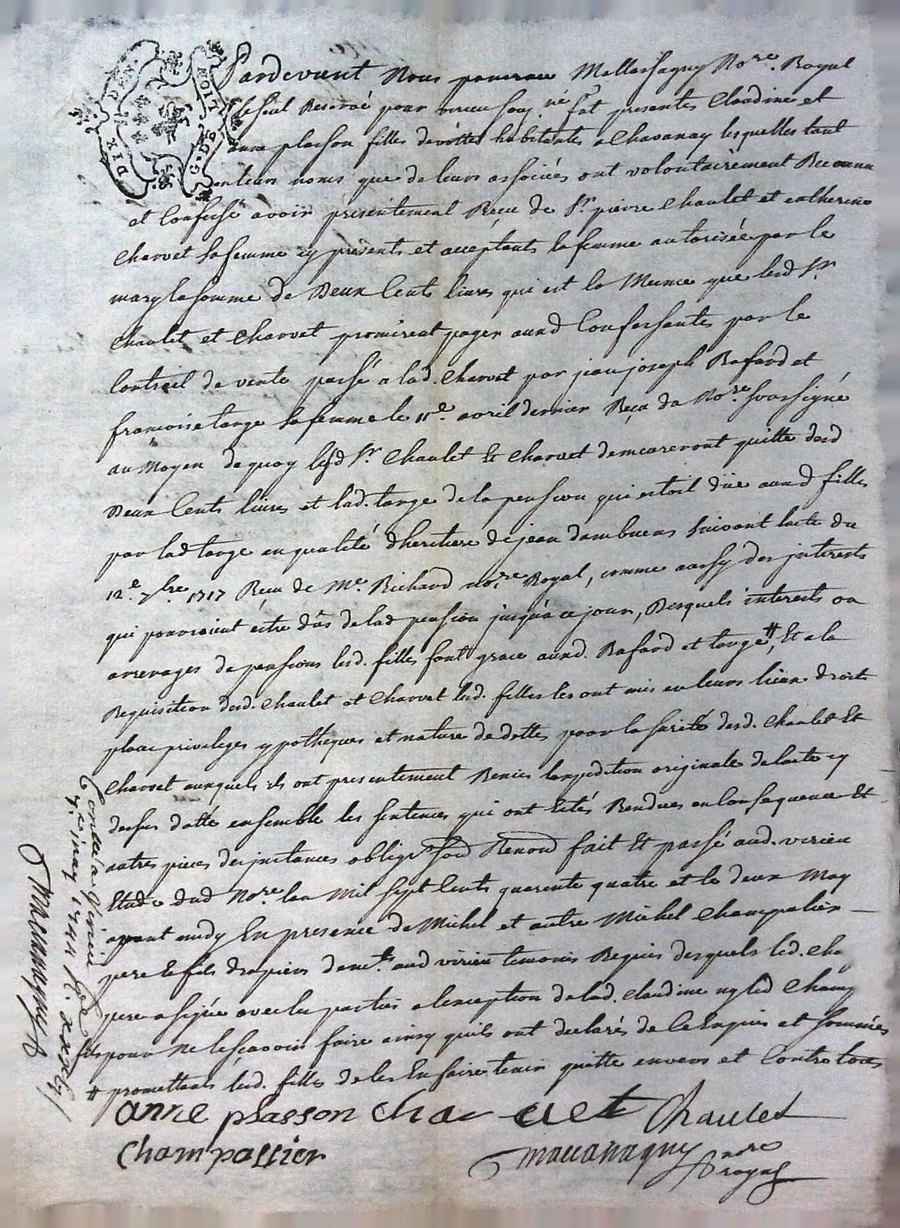 DIX DEN
EOIT G. DE
Pardevant Nous Notre. Royal
et Reservé pour virieu soug.né fut presentes Claudine et
anne plasson filles devottes habitantes a Chavanay lesquelles tant
en leurs noms que de leurs associées ont volontairement Reconnu
et Confessé avoir presentement Receu de Sr. pierre Chaulet et catherine
Charvet sa femme icy presents et acceptants la femme autorisée par le
mary la somme de Deux Cents livres qui est la Meme que lesd Sr.
Chaulet et Charvet promirent payer auxd Confessantes par le
Contract de vente passé a lad. Charvet par jean joseph Bafard et
francoise tange sa femme le 11e. avril dernier Receu du No.re soussigné
au Moyen de quoy lesd Sr. Chaulet et Charvet demeureront quitte desd
Deux Cents livres et lad. tange de la pension qui estoit düe auxd filles
par lad tange en qualité dheritiere de jean dambuens suivant lacte du
12e. 7bre. 1717 Receu de Me. Richard no.re Royal, comme aussy des jnterests
qui pouvoient estre dûs de lad pension jusqua ce jour, Desquels interests ou
arrerages de pensions lesd. filles font grace auxd. Bafard et tange #, Et a la
Requisition desd. Chaulet et Charvet lesd. filles les ont mis en leurs lieu droit
place privileges ypotheques et nature de dettes pour la sureté desd. Chaulet Et
Charvet auxquels ils ont presentement Remis lexpedition originale de lacte cy
dessus datté ensemble les sentences qui ont Estés Rendues en Consequence Et
autres pieces des jnstances oblig. Soud Renond fait Et passé aud. virieu
Etude dud No.re lan Mil sept Cents quarente quatre et le deux May
avant midy En presence de Michel et autre Michel Champalier
pere Et fils drapiers dem.ts aud virieu temoins Requis desquels led. Cha
pere a signée avec les parties a lexception de lad. Claudine ny led Champ
fils pour Ne le scavoir faire ainsy quils ont declarés de ce Enquis et Sommées
# promettants lesd. filles de les En faire tenir quitte envers et Contre tous
anne plasson Charvet Chaulet
Champallier
no.re royal
Controllé a
may 1744